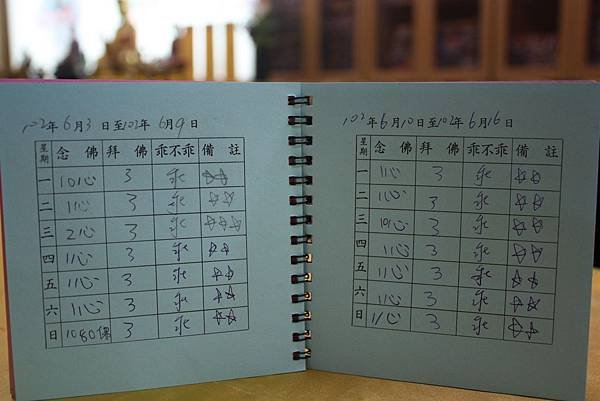 102年 6月3日至102年 6月9日
星期 念佛 拜佛 乖不乖 備註
一 101心 3 乖 ☆☆
二 11心 3 乖 ☆☆
三 21心 3 乖 ☆☆☆
四 11心 3 乖 ☆☆
五 11心 3 乖 ☆☆
六 11心 3 乖 ☆☆
日 1080課 3 乖 ☆☆
102年6月10日至102年6月16日
星期 念佛 拜佛 乖不乖 備註
一 11心 3 乖 ☆☆
二 11心 3 乖 ☆☆
三 101心 3 乖 ☆☆
四 11心 3 乖 ☆☆
五 11心 3 乖 ☆☆
六 11心 3 乖 ☆☆
日 11心 3 乖 ☆☆